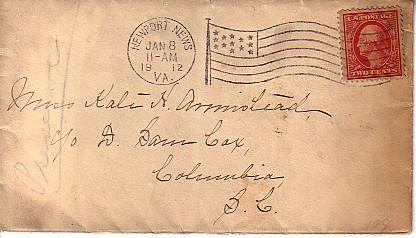 NEWPORT NEWS
JAN 8
11-AM
1912
VA.
U.S. POSTAGE
TWO CENTS
Miss Kate H. Armistead,
c/o D. Bam Cox,
Columbia
S. C.